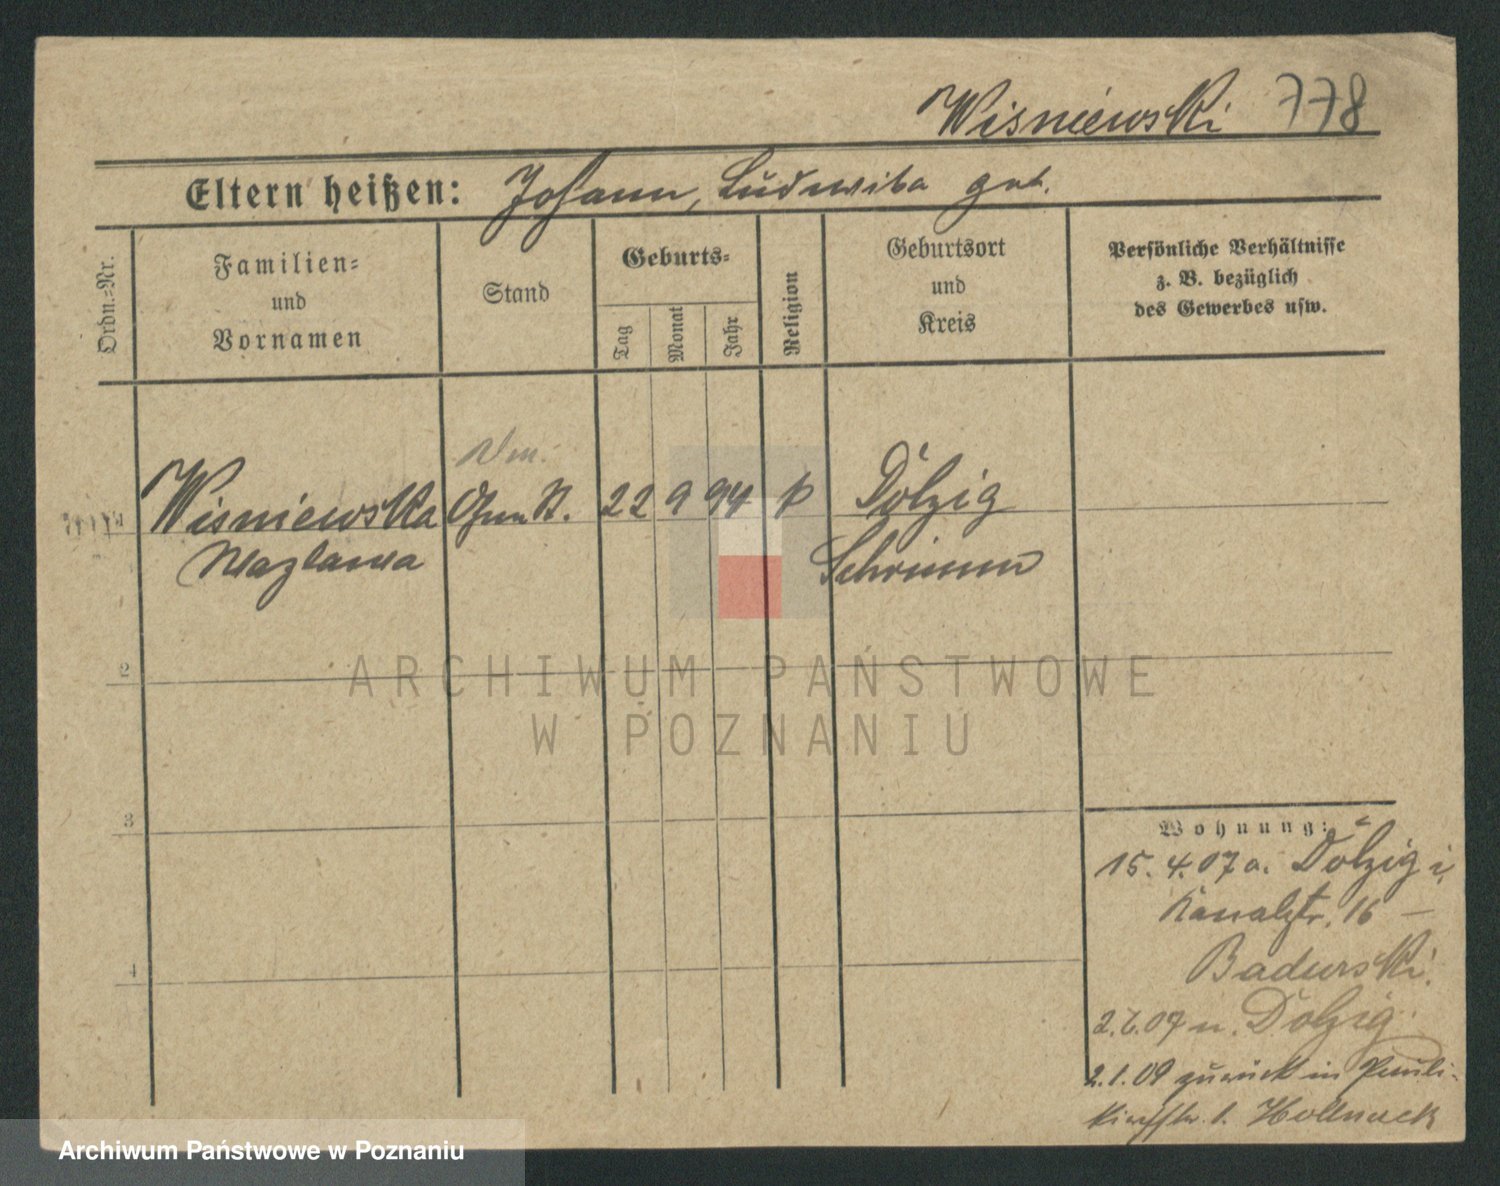 Wisniewski 778
Eltern heißen: Johann, Ludwika geb.
Ordn.-Nr.
Familien-
und
Vornamen
Stand
Geburts-
Tag
Monat
Jahr
Religion
Geburtsort
und
Kreis
Persönliche Verhältnisse
z. B. bezüglich
des Gewerbes usw.
Wisniewska 22 9 94 k Dolzig
Wazlawa Schrimm
2
3
4
Wohnung:
15. 4. 07 a. Dolzig i.
Kanalstr. 16 —
Badurski.
07 n. Dolzig
2. 1. 09 zurück in Pauli-
kirchstr. 1. Hollnack
ARCHIWUM PAŃSTWOWE
W POZNANIU
Archiwum Państwowe w Poznaniu